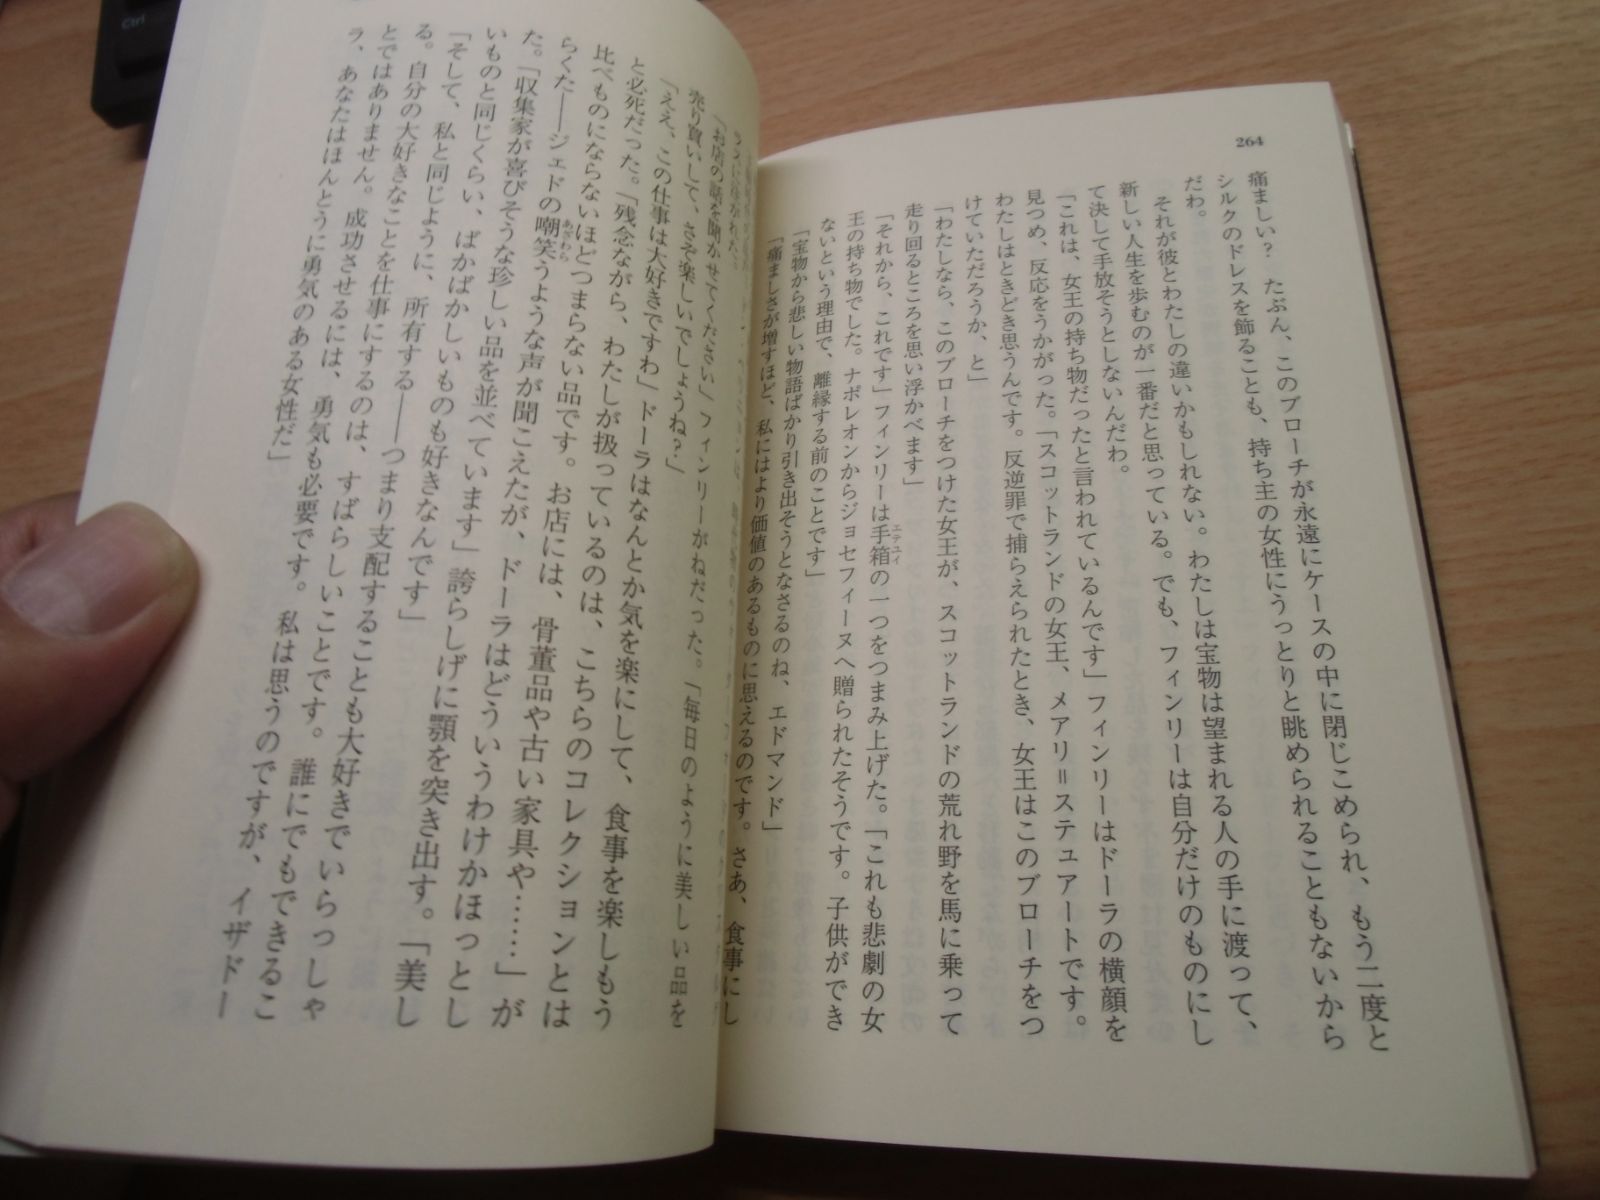 Ctrl
264
痛ましい？　たぶん、このブローチが永遠にケースの中に閉じこめられ、もう二度と
シルクのドレスを飾ることも、持ち主の女性にうっとりと眺められることもないから
だわ。
それが彼とわたしの違いかもしれない。わたしは宝物は望まれる人の手に渡って、
新しい人生を歩むのが一番だと思っている。でも、フィンリーは自分だけのものにし
て決して手放そうとしないんだわ。
「これは、女王の持ち物だったと言われているんです」フィンリーはドーラの横顔を
見つめ、反応をうかがった。「スコットランドの女王、メアリ＝ステュアートです。
わたしはときどき思うんです。反逆罪で捕らえられたとき、女王はこのブローチをつ
けていただろうか、と」
「わたしなら、このブローチをつけた女王が、スコットランドの荒れ野を馬に乗って
走り回るところを思い浮かべます」
「それから、これです」フィンリーは手箱の一つをつまみ上げた。「これも悲劇の女
エテュイ
王の持ち物でした。ナポレオンからジョセフィーヌへ贈られたそうです。子供ができ
ないという理由で、離縁する前のことです」
「宝物から悲しい物語ばかり引き出そうとなさるのね、エドマンド」
「痛ましさが増すほど、私にはより価値のあるものに思えるのです。さあ、食事にし
「お店の話を聞かせてください」フィンリーがねだった。「毎日のように美しい品を
売り買いして、さぞ楽しいでしょうね？」
「ええ、この仕事は大好きですわ」ドーラはなんとか気を楽にして、食事を楽しもう
と必死だった。「残念ながら、わたしが扱っているのは、こちらのコレクションとは
比べものにならないほどつまらない品です。お店には、骨董品や古い家具や……」が
らくた――ジェドの嘲笑うような声が聞こえたが、ドーラはどういうわけかほっとし
あざわら
た。「収集家が喜びそうな珍しい品を並べています」誇らしげに顎を突き出す。「美し
いものと同じくらい、ばかばかしいものも好きなんです」
「そして、私と同じように、所有する――つまり支配することも大好きでいらっしゃ
る。自分の大好きなことを仕事にするのは、すばらしいことです。誰にでもできるこ
とではありません。成功させるには、勇気も必要です。私は思うのですが、イザドー
ラ、あなたはほんとうに勇気のある女性だ」